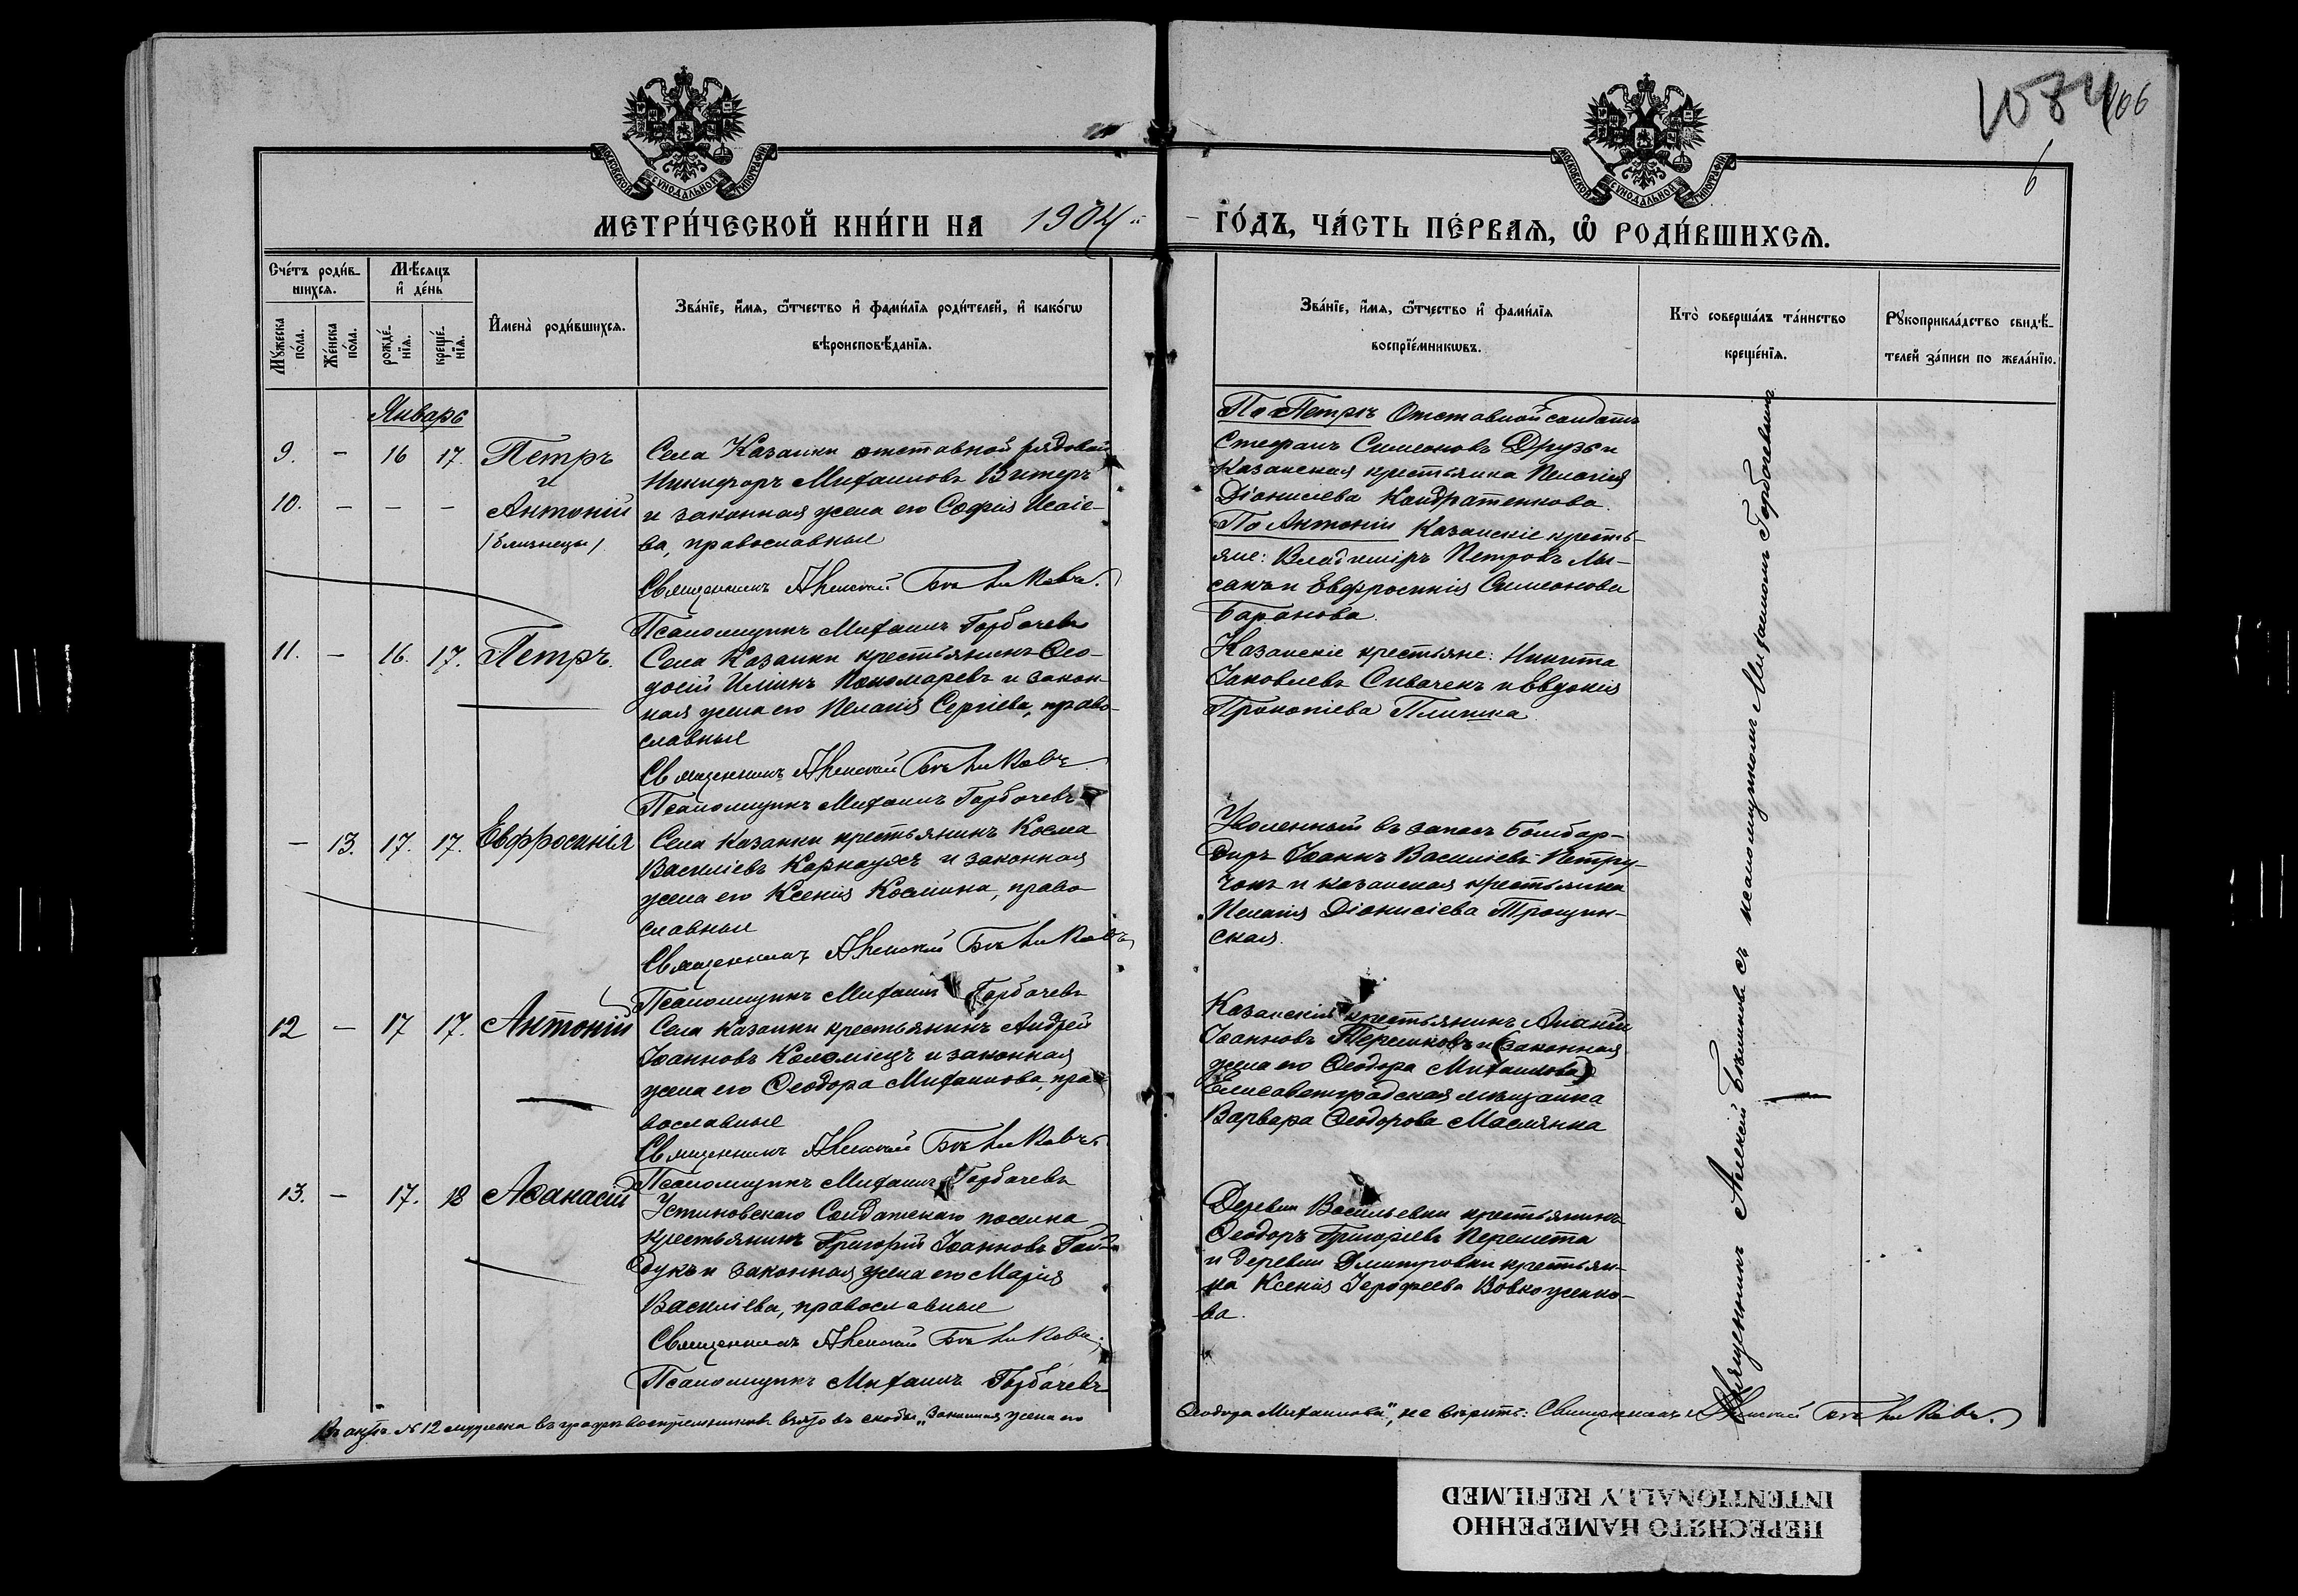 1084
106
6
МОСКОВСКОЙ СУНОДАЛЬНОЙ ТИПОГРАФІИ
МОСКОВСКОЙ СУНОДАЛЬНОЙ ТИПОГРАФІИ
МЕТРИ́ЧЕСКОЙ КНИ́ГИ НА 1904 ГО́ДЪ, ЧА́СТЬ ПЕ́РВАѦ, Ѡ҆ РОДИ́ВШИХСѦ.
Сче́тъ роди́в-
шихсѧ.
Мꙋ́жеска по́ла.
Же́нска по́ла.
Мѣ́сяцъ
и҆ де́нь
рожде́-нїѧ.
креще́-нїѧ.
И҆мена̀ роди́вшихсѧ.
Зва́нїе, и҆́мѧ, ѻ҆́тчество и҆ фами́лїѧ роди́телей, и҆ како́гѡ
вѣроисповѣ́данїѧ.
Зва́нїе, и҆́мѧ, ѻ҆́тчество и҆ фами́лїѧ
воспрїе́мникѡвъ.
Кто̀ соверша́лъ та́инство
креще́нїѧ.
Рꙋкоприкла́дство свидѣ́-
телей за́писи по жела́нїю.
Январь
9. – 16 17. Петръ
и
10. – – – Антоній
/близнецы/
Села Казанки отставной рядовой
Никифоръ Михаиловъ Витеръ
и законная жена его Софія Исаіе-
ва, православные
Священникъ Алексій Бѣлиновъ.
Псаломщикъ Михаилъ Горбачевъ
По Петрѣ Отставной солдатъ
Стефанъ Симеоновъ Друзь и
Казанская крестьянка Пелагія
Діонисіева Кондратенкова.
По Антоніи Казанскіе кресть-
яне: Владиміръ Петровъ Лы-
санъ и Евфросинія Симеонова
Баранова.
11. – 16. 17. Петръ.
Села Казанки крестьянинъ Ѳео-
досій Иліинъ Пономаревъ и закон-
ная жена его Пелагія Сергіева, право-
славные
Священникъ Алексій Бѣлиновъ
Псаломщикъ Михаилъ Горбачевъ
Казанскіе крестьяне: Никита
Іаковлевъ Сиваченъ и Евдокія
Прокопіева Плишка
– 13. 17. 17. Евфросинія
Села Казанки крестьянинъ Косма
Василіевъ Карнаухъ и законная
жена его Ксенія Космина, право-
славные
Священникъ Алексій Бѣлиновъ
Псаломщикъ Михаилъ Горбачевъ
Уволенный въ запасъ Бомбар-
диръ Іоаннъ Василіевъ Петру-
чокъ и казанская крестьянка
Пелагія Діонисіева Трощин-
ская.
12 – 17 17. Антоній
Села Казанки крестьянинъ Андрей
Іоанновъ Коломіецъ и законная
жена его Ѳеодора Михаилова, пра-
вославные
Священникъ Алексій Бѣлиновъ
Псаломщикъ Михаилъ Горбачевъ
Казанскій крестьянинъ Ананій
Іоанновъ Терешковъ и (законная
жена его Ѳеодора Михаилова)
Елисаветградская мѣщанка
Варвара Ѳеодорова Маслянка
13. – 17. 18 Аѳанасій
Устиновскаго Солдатскаго поселка
крестьянинъ Григорій Іоанновъ Гай-
дукъ и законная жена его Марія
Василіева, православные
Священникъ Алексій Бѣлиновъ
Псаломщикъ Михаилъ Горбачевъ
Деревни Васильевки крестьянинъ
Ѳеодоръ Григоріевъ Перемета
и деревни Дмитровки крестьян-
ка Ксенія Іерофеева Вовкоженко-
ва.
Священникъ Алексій Бѣлиновъ съ псаломщикомъ Михаиломъ Горбачевымъ
Въ актѣ №12 мужеска въ графѣ воспріемниковъ взято въ скобы „Законная жена его
Ѳеодора Михаилова", не вѣрить: Священникъ Алексій Бѣлиновъ.
ПЕРЕСНЯТО НАМЕРЕННО
INTENTIONALLY REFILMED